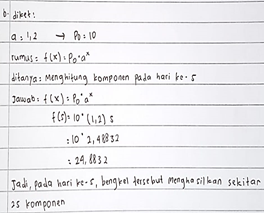 b. diket:
a = 1,2 → P₀ = 10
rumus = f(x) = P₀ · aˣ
ditanya = Menghitung komponen pada hari ke-5
Jawab = f(x) = P₀ · aˣ
f(5) = 10 · (1,2) 5
= 10 · 2,48832
= 24,8832
Jadi, pada hari ke-5, bengkel tersebut menghasilkan sekitar
25 komponen